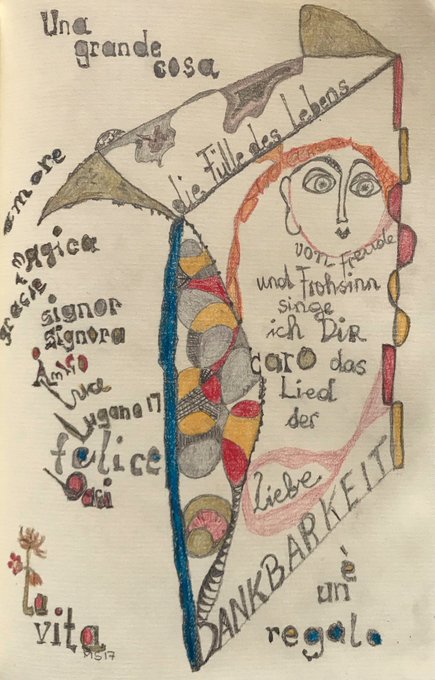 Una
grande
cosa
die Fülle des Lebens
amore
magica
grazie
signor
signora
Amico
Luce
Lugano 17
felice
Baci
von Freude
und Frohsinn
singe
ich DIR
caro das
Lied
der
Liebe
DANKBARKEIT
la
vita
MS17
è
un
regalo